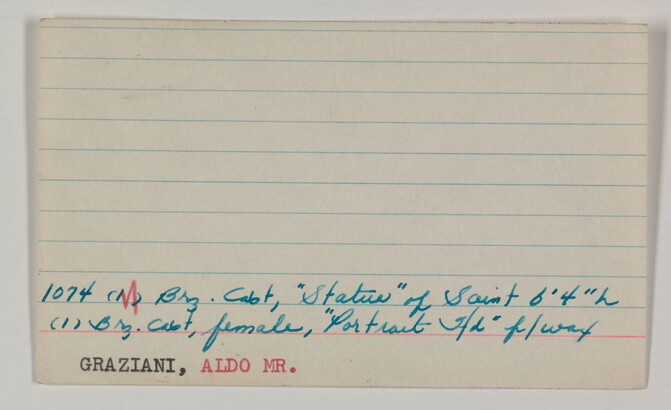 1074 (1) Brz. Cast, "Statue" of Saint 6'4"h
(1) Brz. Cast, female, "Portrait H/d" f/wax
GRAZIANI, ALDO MR.